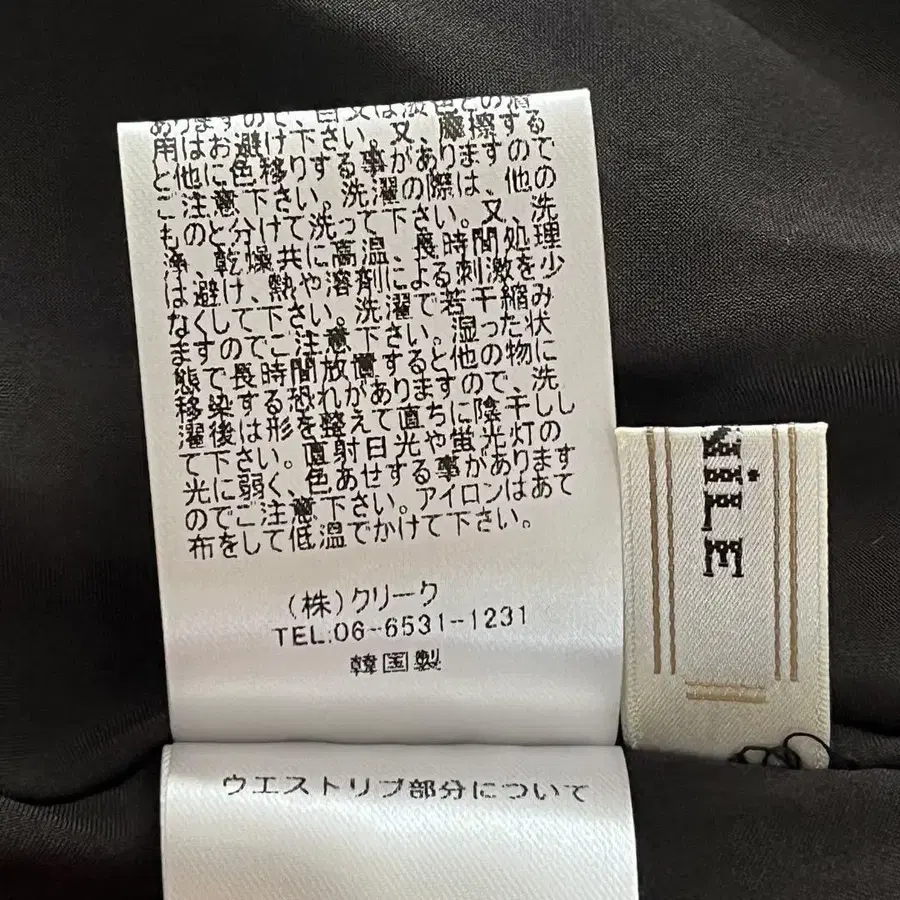 ありますので、白又は淡色との着
用はお避け下さい。又、摩擦する
と他に色移りする事がありますので
ご注意下さい。洗濯の際は、他の
ものと分けて洗って下さい。又、洗
浄、乾燥共に高温、長時間処理
は避け、熱や溶剤による刺激を少
なくして下さい。洗濯で若干縮み
ますのでご注意下さい。湿った状
態で長時間放置すると他の物に
移染する恐れがありますので、洗
濯後は形を整えて直ちに陰干しし
て下さい。直射日光や蛍光灯の
光に弱く、色あせする事があります
のでご注意下さい。アイロンはあて
布をして低温でかけて下さい。
(株)クリーク
TEL:06-6531-1231
韓国製
ウエストリブ部分について